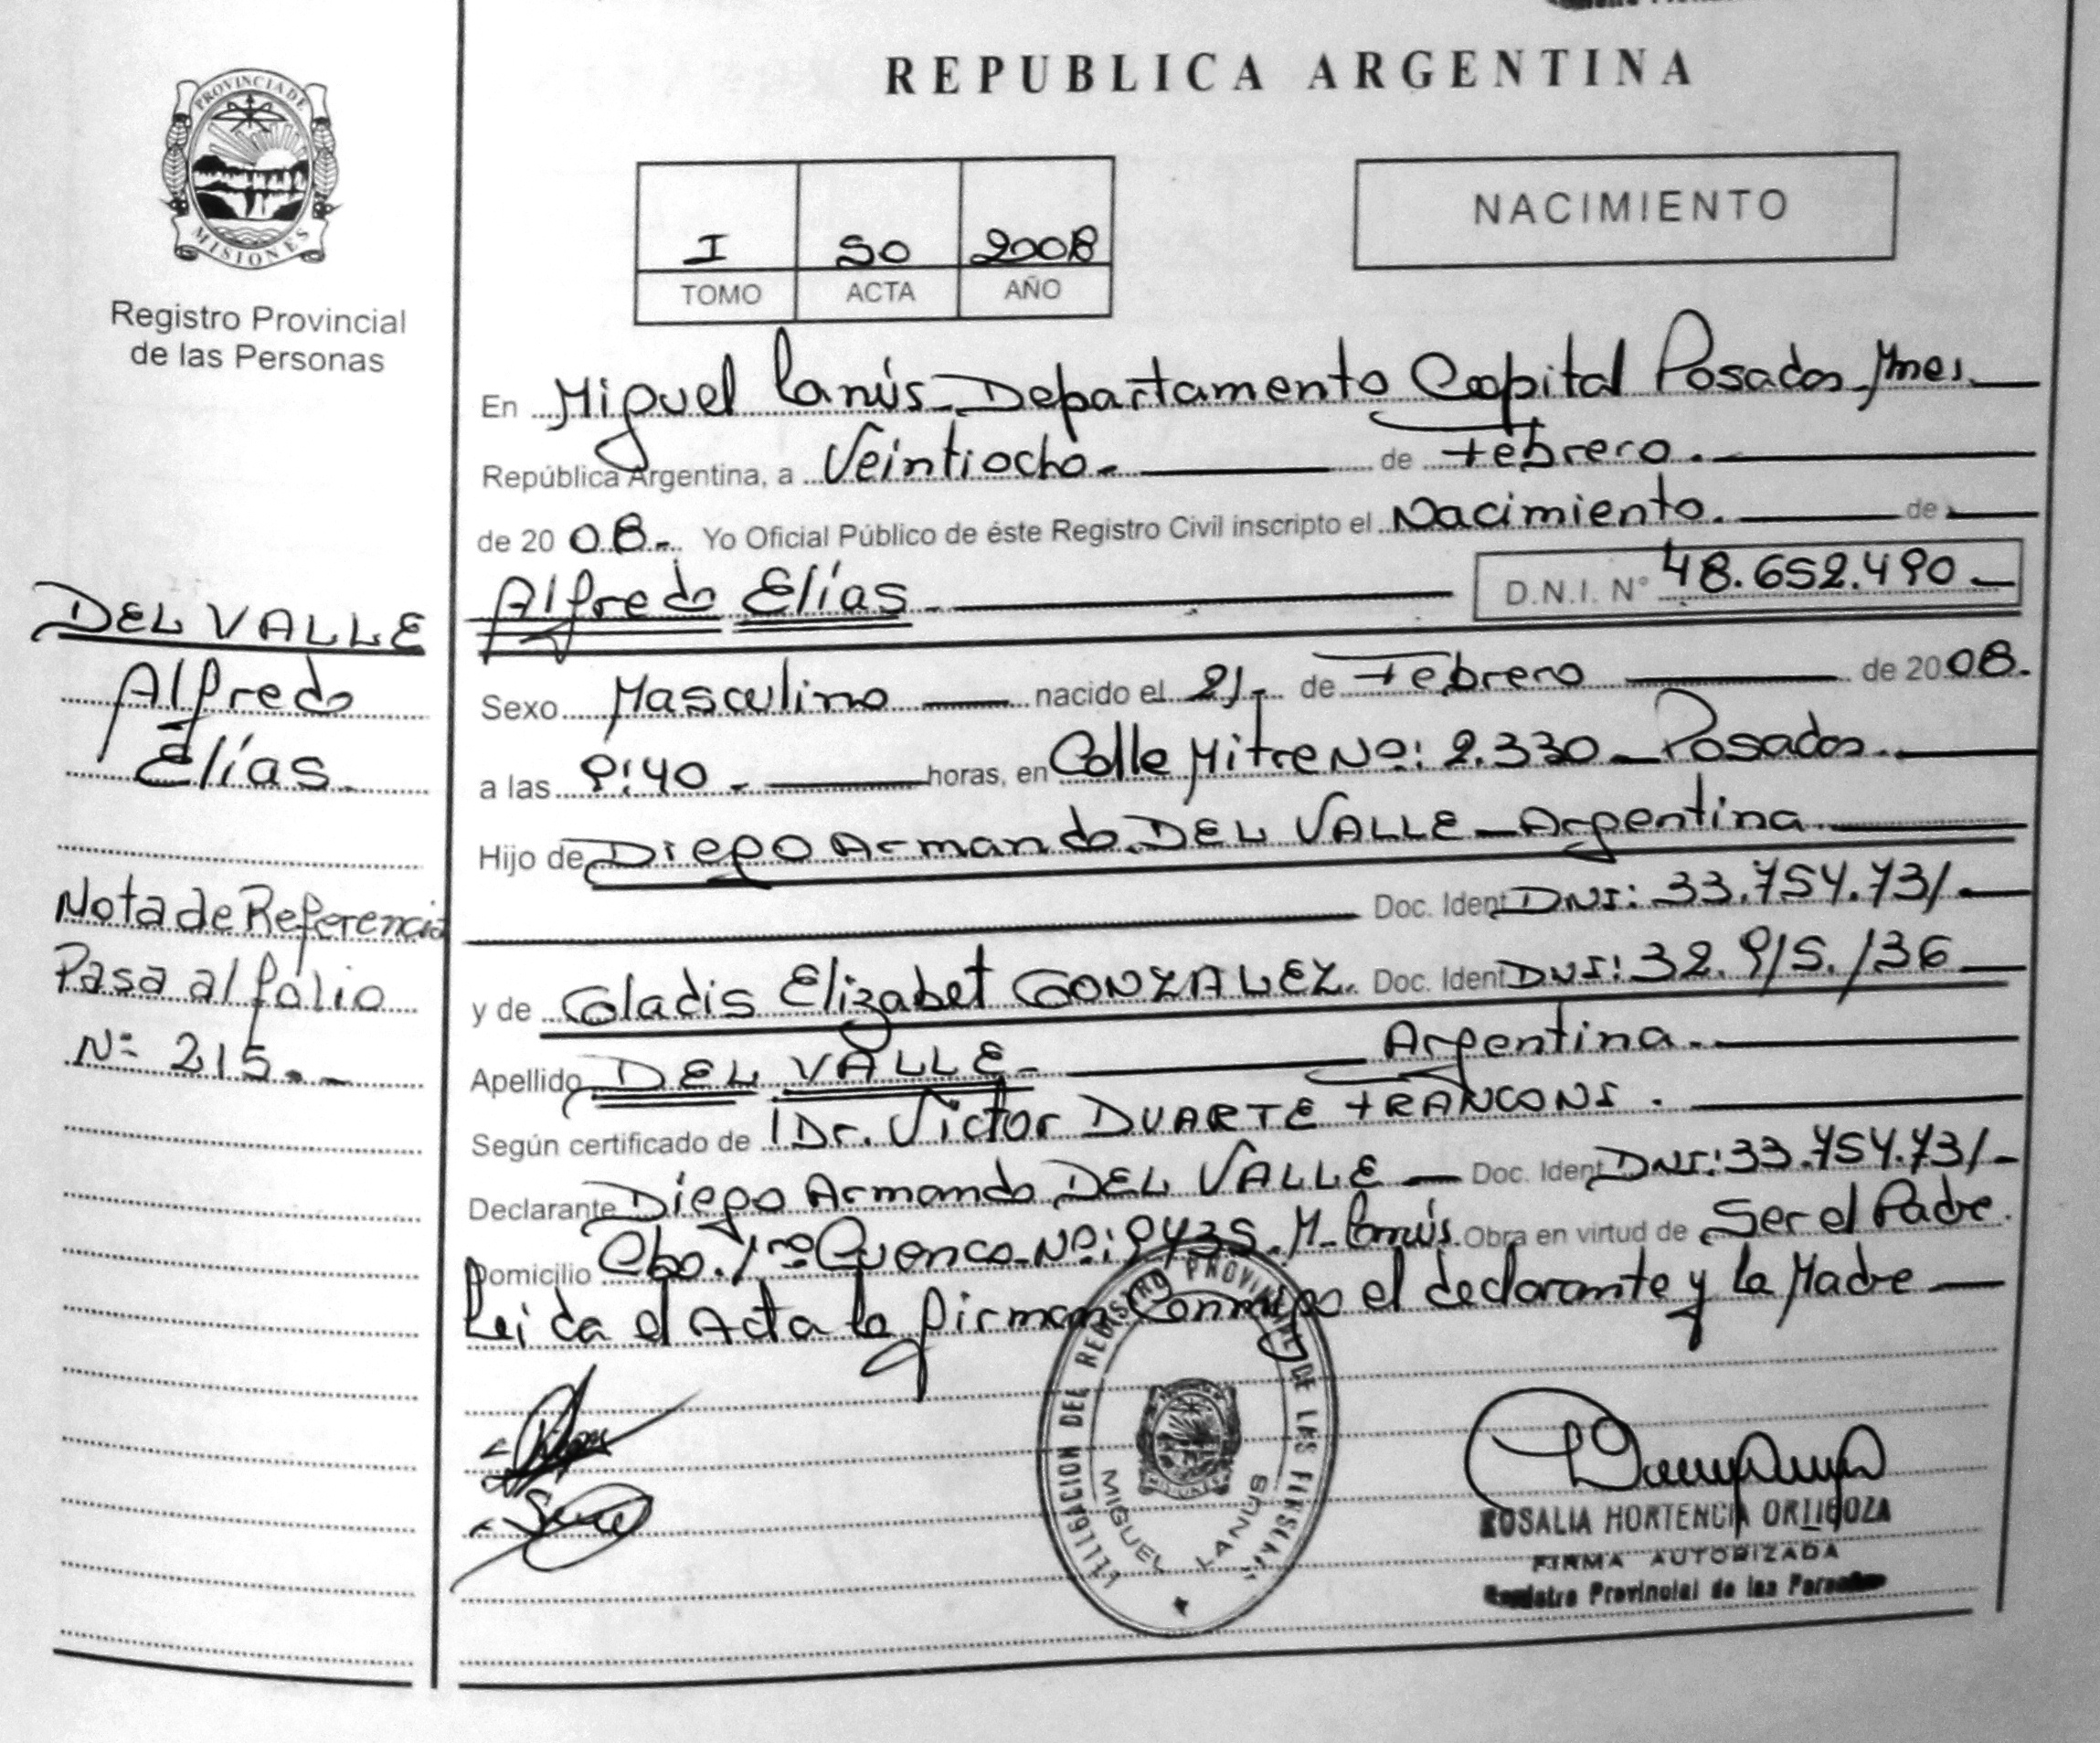 PROVINCIA DE
MISIONES
Registro Provincial
de las Personas
DEL VALLE
Alfredo
Elías.
Nota de Referencia
Pasa al folio
Nº 215.-
REPUBLICA ARGENTINA
I 50 2008
TOMO ACTA AÑO
NACIMIENTO
En Miguel Lanús - Departamento Capital Posadas Mnes.
República Argentina, a Veintiocho.- de Febrero.
de 20 08.- Yo Oficial Público de éste Registro Civil inscripto el Nacimiento. de
Alfredo Elías.- D.N.I. N° 48.652.490
Sexo Masculino nacido el 21.- de Febrero de 20 08.
a las 9:40.- horas, en Calle Mitre Nº: 2.330 - Posadas.
Hijo de Diego Armando DEL VALLE - Argentina.
Doc. Ident DNI: 33.754.731.-
y de Gladis Elizabet GONZALEZ. Doc. Ident DNI: 32.915.136
Apellido DEL VALLE.- Argentina.-
Según certificado de Dr. Victor DUARTE FRANCONI.
Declarante Diego Armando DEL VALLE - Doc. Ident DNI: 33.754.731.-
Domicilio Cbo. 1ro Cuenca Nº: 9435. M. Lanús. Obra en virtud de Ser el Padre.
Leida el Acta la firman Conmigo el declarante y la Madre
DELEGACION DEL REGISTRO PROVINCIAL DE LAS PERSONAS
MIGUEL LANUS
ROSALIA HORTENCIA ORTIGOZA
FIRMA AUTORIZADA
Registro Provincial de las Personas